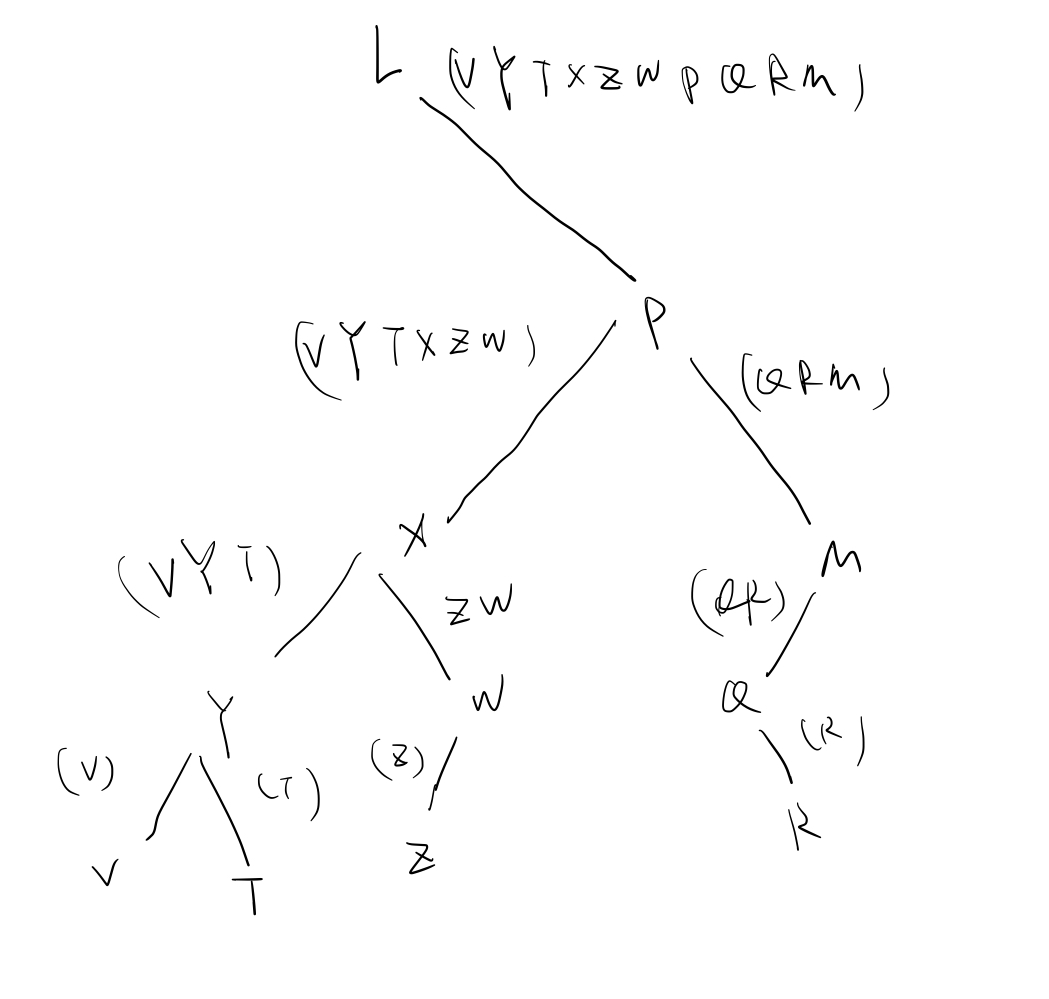 L (VYTXZWPQRM)
P
(VYTXZW)
(QRM)
X
M
(VYT)
ZW
(QR)
Y
W
Q
(V)
(T)
(Z)
(R)
V
T
Z
R